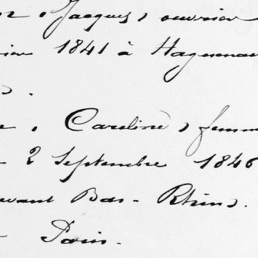 Jacques, ouvrier
1841 à Haguenau
Caroline, femme
2 Septembre 1846
devant Bas-Rhin.
Paris.